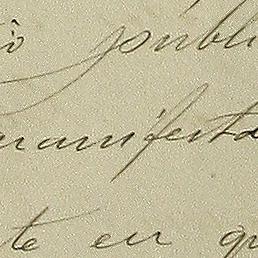 públi
manifesta
te en qu